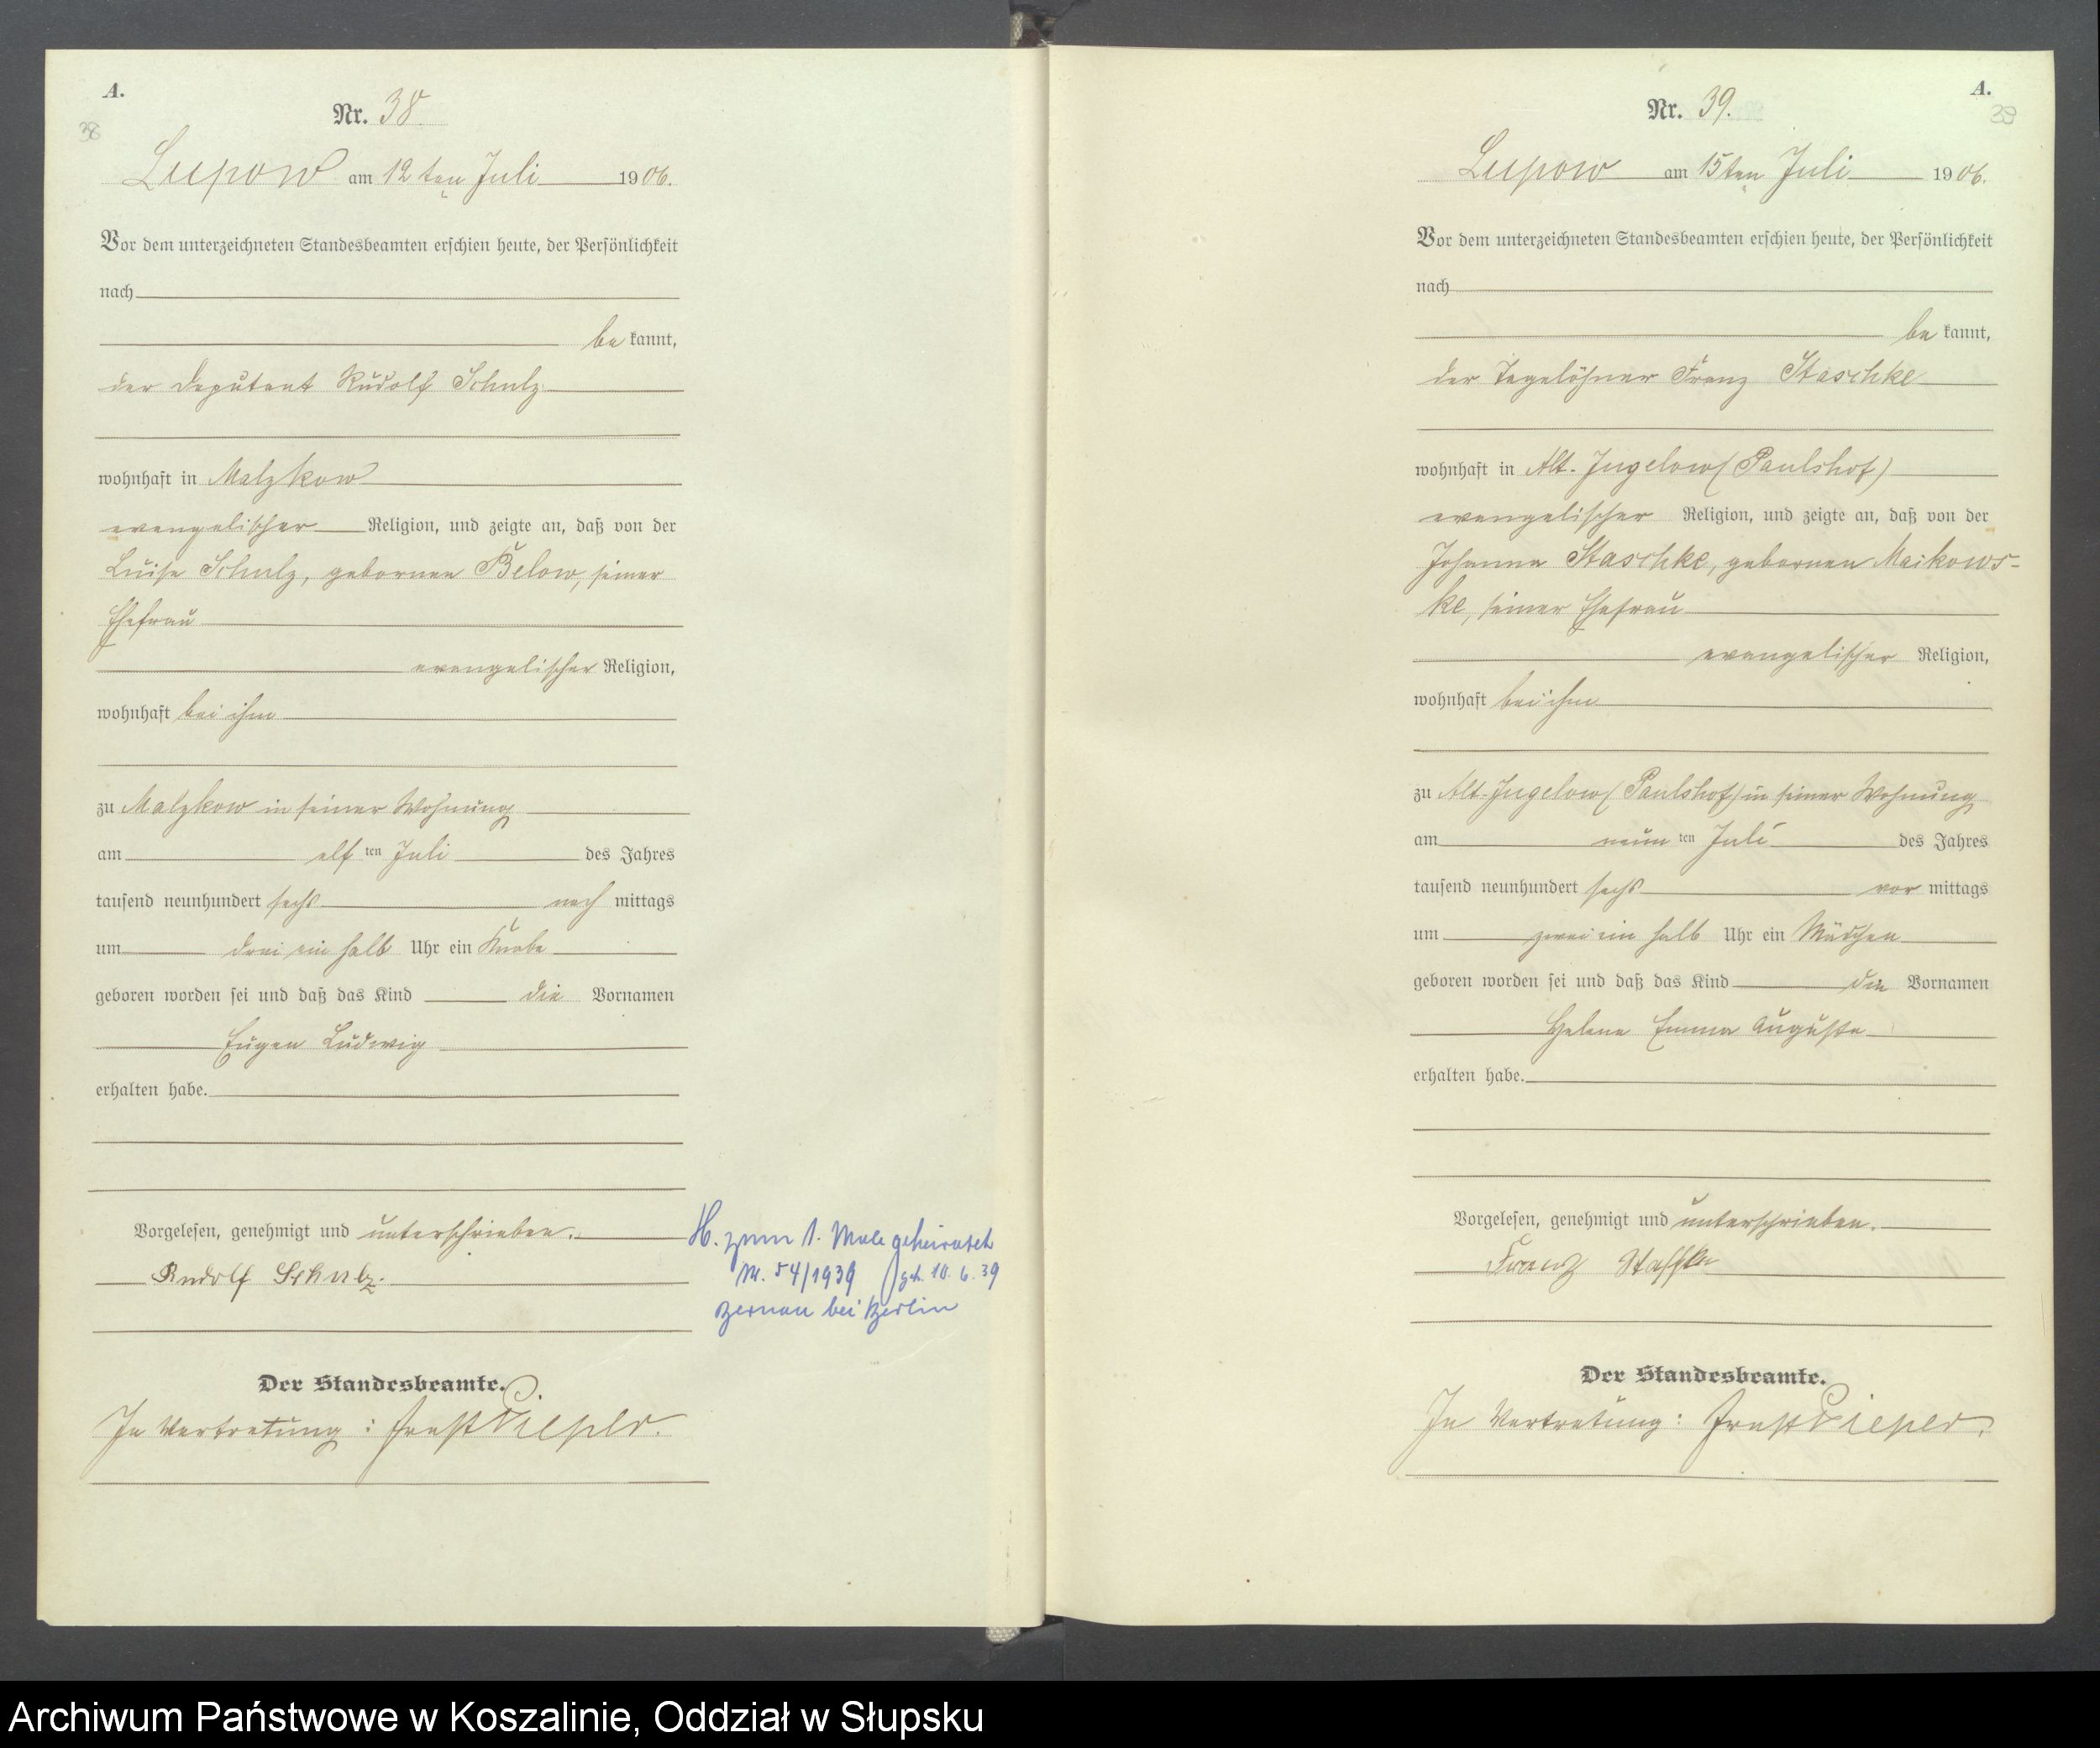 A.
Nr. 38.
38
Lupow am 12ten Juli 1906.
Vor dem unterzeichneten Standesbeamten erschien heute, der Persönlichkeit
nach
be kannt,
der Deputant Rudolf Schulz
wohnhaft in Malzkow
evangelischer Religion, und zeigte an, daß von der
Luise Schulz, gebornen Below, seiner
Ehefrau
evangelischer Religion,
wohnhaft bei ihm
zu Malzkow in seiner Wohnung
am elf ten Juli des Jahres
tausend neunhundert sechs nach mittags
um drei ein halb Uhr ein Knabe
geboren worden sei und daß das Kind die Vornamen
Eugen Ludwig
erhalten habe.
Vorgelesen, genehmigt und unterschrieben.
Rudolf Schulz.
H. zum 1. Male geheiratet
Nr. 54/1939 geh. 10. 6. 39
Bernau bei Berlin
Der Standesbeamte.
In Vertretung: Ernst Pieper.
A.
Nr. 39.
39
Lupow am 15ten Juli 1906.
Vor dem unterzeichneten Standesbeamten erschien heute, der Persönlichkeit
nach
be kannt,
der Tagelöhner Franz Staschke
wohnhaft in Alt-Jugelow (Paulshof)
evangelischer Religion, und zeigte an, daß von der
Johanna Staschke, gebornen Maikows-
ke, seiner Ehefrau
evangelischer Religion,
wohnhaft bei ihm
zu Alt-Jugelow (Paulshof) in seiner Wohnung
am neun ten Juli des Jahres
tausend neunhundert sechs vor mittags
um zwei ein halb Uhr ein Mädchen
geboren worden sei und daß das Kind die Vornamen
Helene Emma Auguste
erhalten habe.
Vorgelesen, genehmigt und unterschrieben.
Franz Staschke
Der Standesbeamte.
In Vertretung: Ernst Pieper.
Archiwum Państwowe w Koszalinie, Oddział w Słupsku